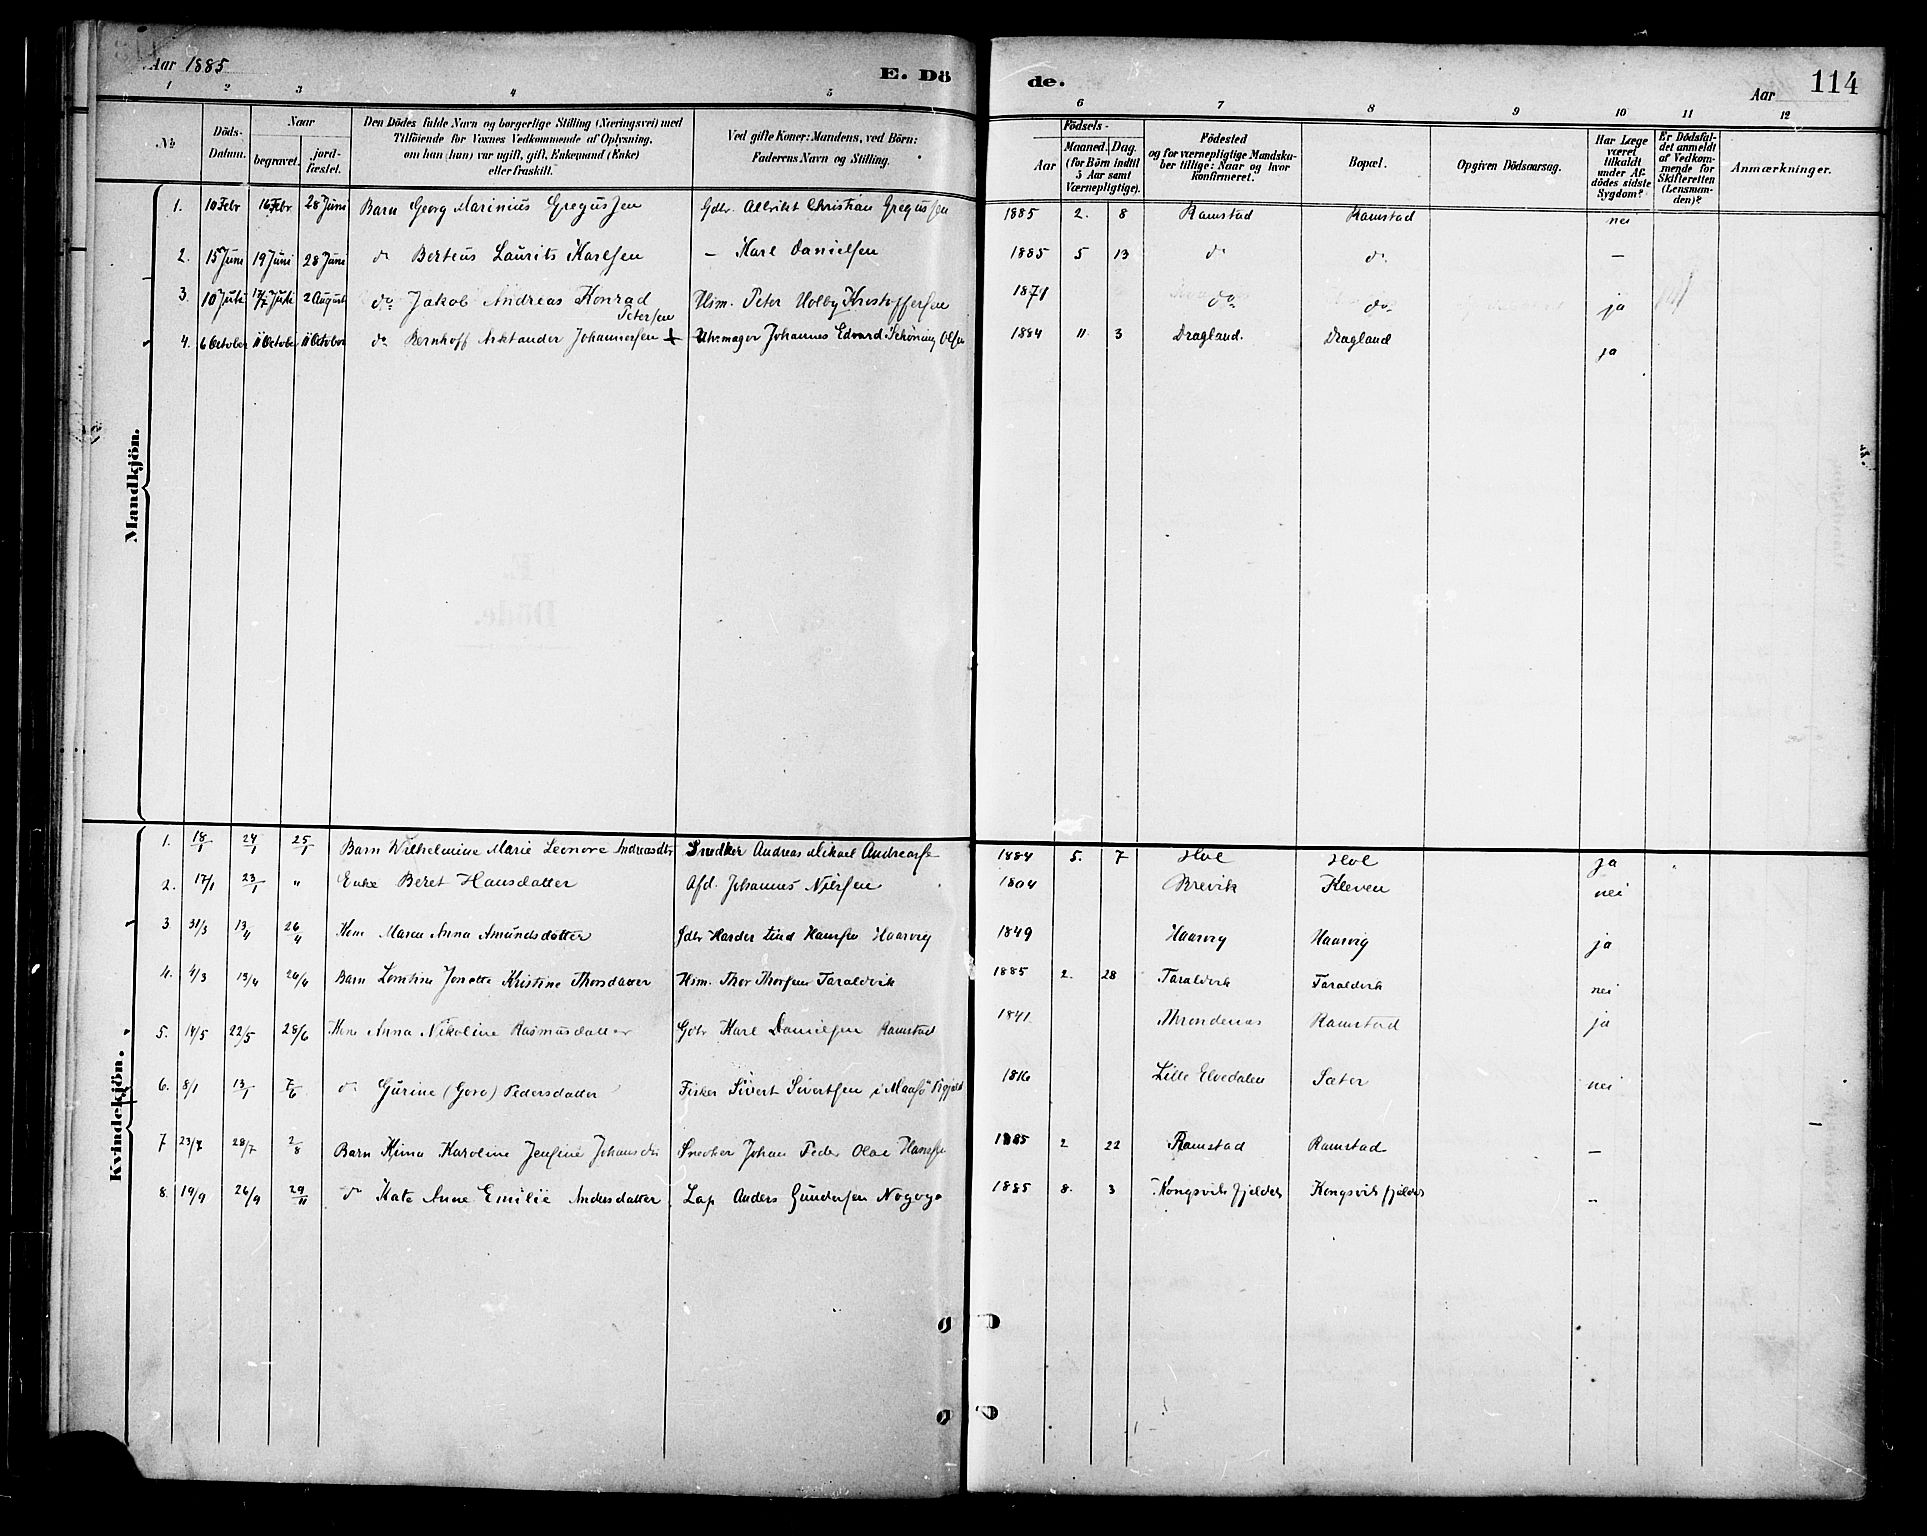 Aar 1885 E. Dö de. Aar 114
1 2 3 4 5 6 7 8 9 10 11 12
№
Döds-Datum.
Naar
begravet.
jord-fæstet.
Den Dödes fulde Navn og borgerlige Stilling (Næringsvei) med
Tilföiende for Voxnes Vedkommende af Oplysning,
om han (hun) var ugift, gift, Enkemand (Enke)
eller fraskilt.
Ved gifte Koner: Mandens, ved Börn:
Faderens Navn og Stilling.
Födsels-
Aar
Maaned. Dag.
(for Börn indtil
5 Aar samt
Værnepligtige).
Födested
og for værnepligtige Mandsku-
ber tillige: Naar og hvor
konfirmeret.
Bopæl.
Opgiven Dödsaarsag.
Har Læge
været
tilkaldt
under Af-
dödes sidste
Sygdom?
Er Dödsfal-
det anmeldt
af Vedkom-
mende for
Skifteretten
(Lensman-
den)?
Anmærkninger.
Mandkjön.
1. 10 Febr 16 Febr 28 Juni Barn Georg Marinius Gregussen Gdbr. Albrikt Christian Gregussen 1885 2. 8 Ramstad Ramstad nei
2. 15 Juni 19 Juni 28 Juni do Berteus Laurits Karlsen – Karl Danielsen 1885 5 13 do do –
3. 10 Juli 17/7 Juli 2 August do Jakob Andreas Konrad Hsm. Peter Holby Kristoffersen 1871 do do ja
Petersen
4. 6 October 11 October 11 October do Bernhoff Arktander Johannessen + Uhrmager Johannes Edvard Schöning Olsen 1884 11 3 Dragland. Dragland ja
Kvindekjön.
1. 18/1 24/1 25/1 Barn Wilhelmine Marie Leonore Andreasdtr Snedker Andreas Mikael Andreasse 1884 5. 7 Hol Hol ja
2. 17/1 23/1 " Enke Beret Hansdatter Afd. Johannes Nilssen 1804 Brevik Kleven nei
3 31/3 13/4 26/4 Kone Maren Anna Amundsdatter Gdbr Harder Lind Hansen Haarvig 1849 Haarvig Haarvig ja
4. 4/3 13/4 26/4 Barn Jonette Kristine Thorsdatter Hsm. Thor Thorsen Taraldvik 1885 2. 28 Taraldvik Taraldvik nei
5. 14/5 22/5 28/6 Kone Anna Nikoline Rasmusdatter Gdbr Karl Danielsen Ramstad 1841 Throndenas Ramstad ja
6. 8/1 13/1 7/6 do Gurine (Goro) Pedersdatter Fisker Sivert Sivertsen i Maasö 1816 Lille Elvedalen Sæter nei
7 23/7 28/7 2/8 Barn Kima Karoline Jensine Johansdtr Snedker Johan Peder Olai Hansen 1885 2 22 Ramstad Ramstad –
8. 19/9 26/9 29/11 do Kate Anne Emilie Andersdatter Lap Anders Gundersen 1885 8. 3 Kongsvik fjeldet Kongsvik fjeldet –